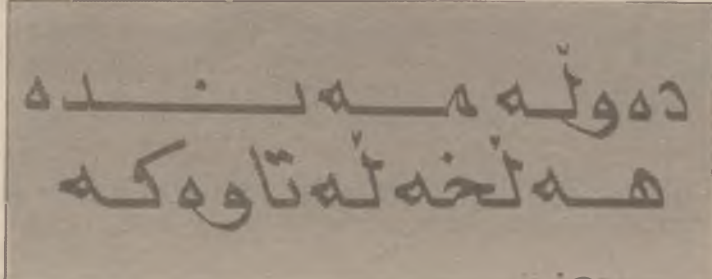 دەوڵەمەندە
هەڵخەڵەتاوەکە